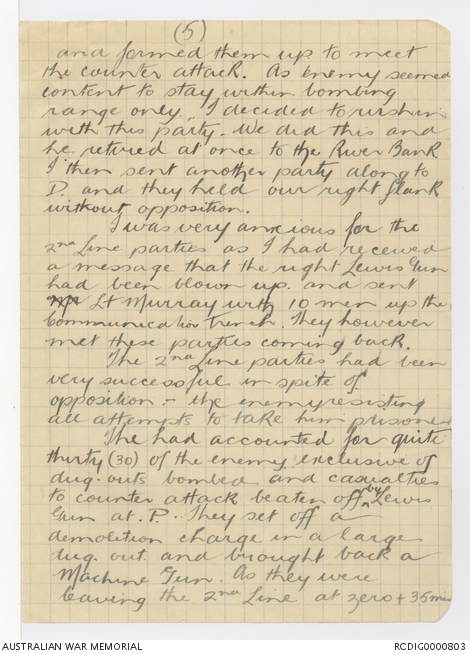 (5)
and formed them up to meet
the counter attack. As enemy seemed
content to stay within bombing
range only, I decided to rush in
with this party. We did this and
he retired at once to the River Bank
I then sent another party along to
D. and they held our right flank
without opposition.
I was very anxious for the
2nd Line parties as I had received
a message that the right Lewis Gun
had been blown up. and sent
Lt Murray with 10 men up the
Communication trench. They however
met these parties coming back.
The 2nd Line parties had been
very successful in spite of
opposition :- the enemy resisting
all attempts to take him prisoner
The had accounted for quite
thirty (30) of the enemy exclusive of
dug-outs bombed and casualties
to counter attack beaten off by Lewis
Gun at P. They set off a
demolition charge in a large
dug out and brought back a
Machine Gun. As they were
leaving the 2nd Line at zero + 35 mins
AUSTRALIAN WAR MEMORIAL
RCDIG0000803